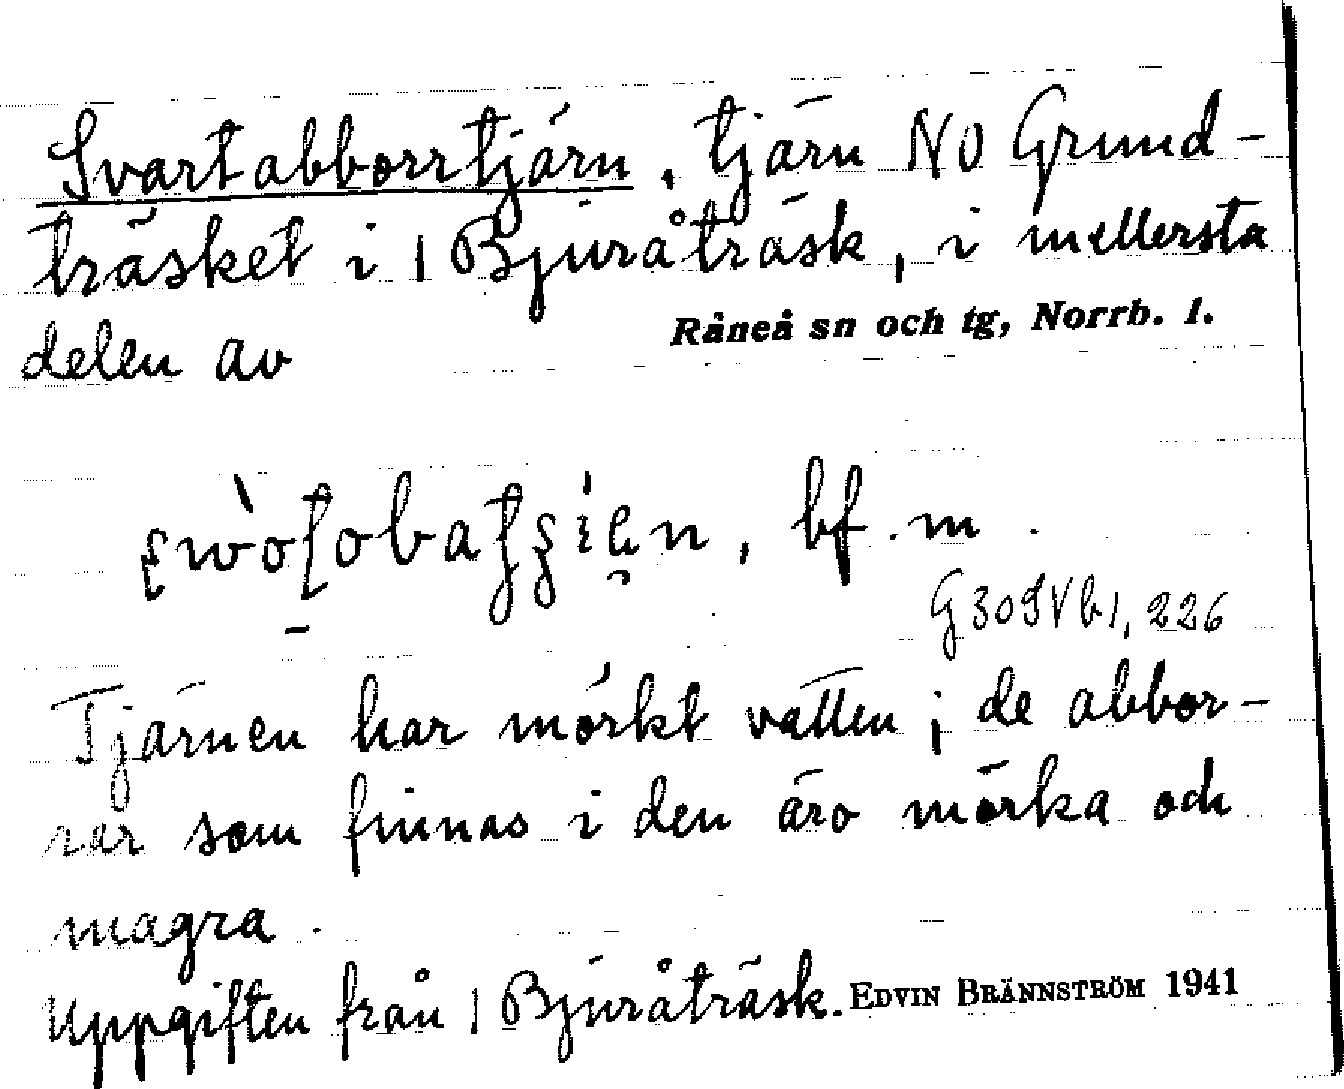 Svartabborrtjärn, tjärn NO Grund-
träsket i 1 Bjuråträsk, i mellersta
delen av Råneå sn och tg, Norrb. l.
bf. m.
G 30 SV b1, 226
Tjärnen har mörkt vatten; de abbor-
rar som finnas i den äro mörka och
magra.
Uppgiften från 1 Bjuråträsk. EDVIN BRÄNNSTRÖM 1941